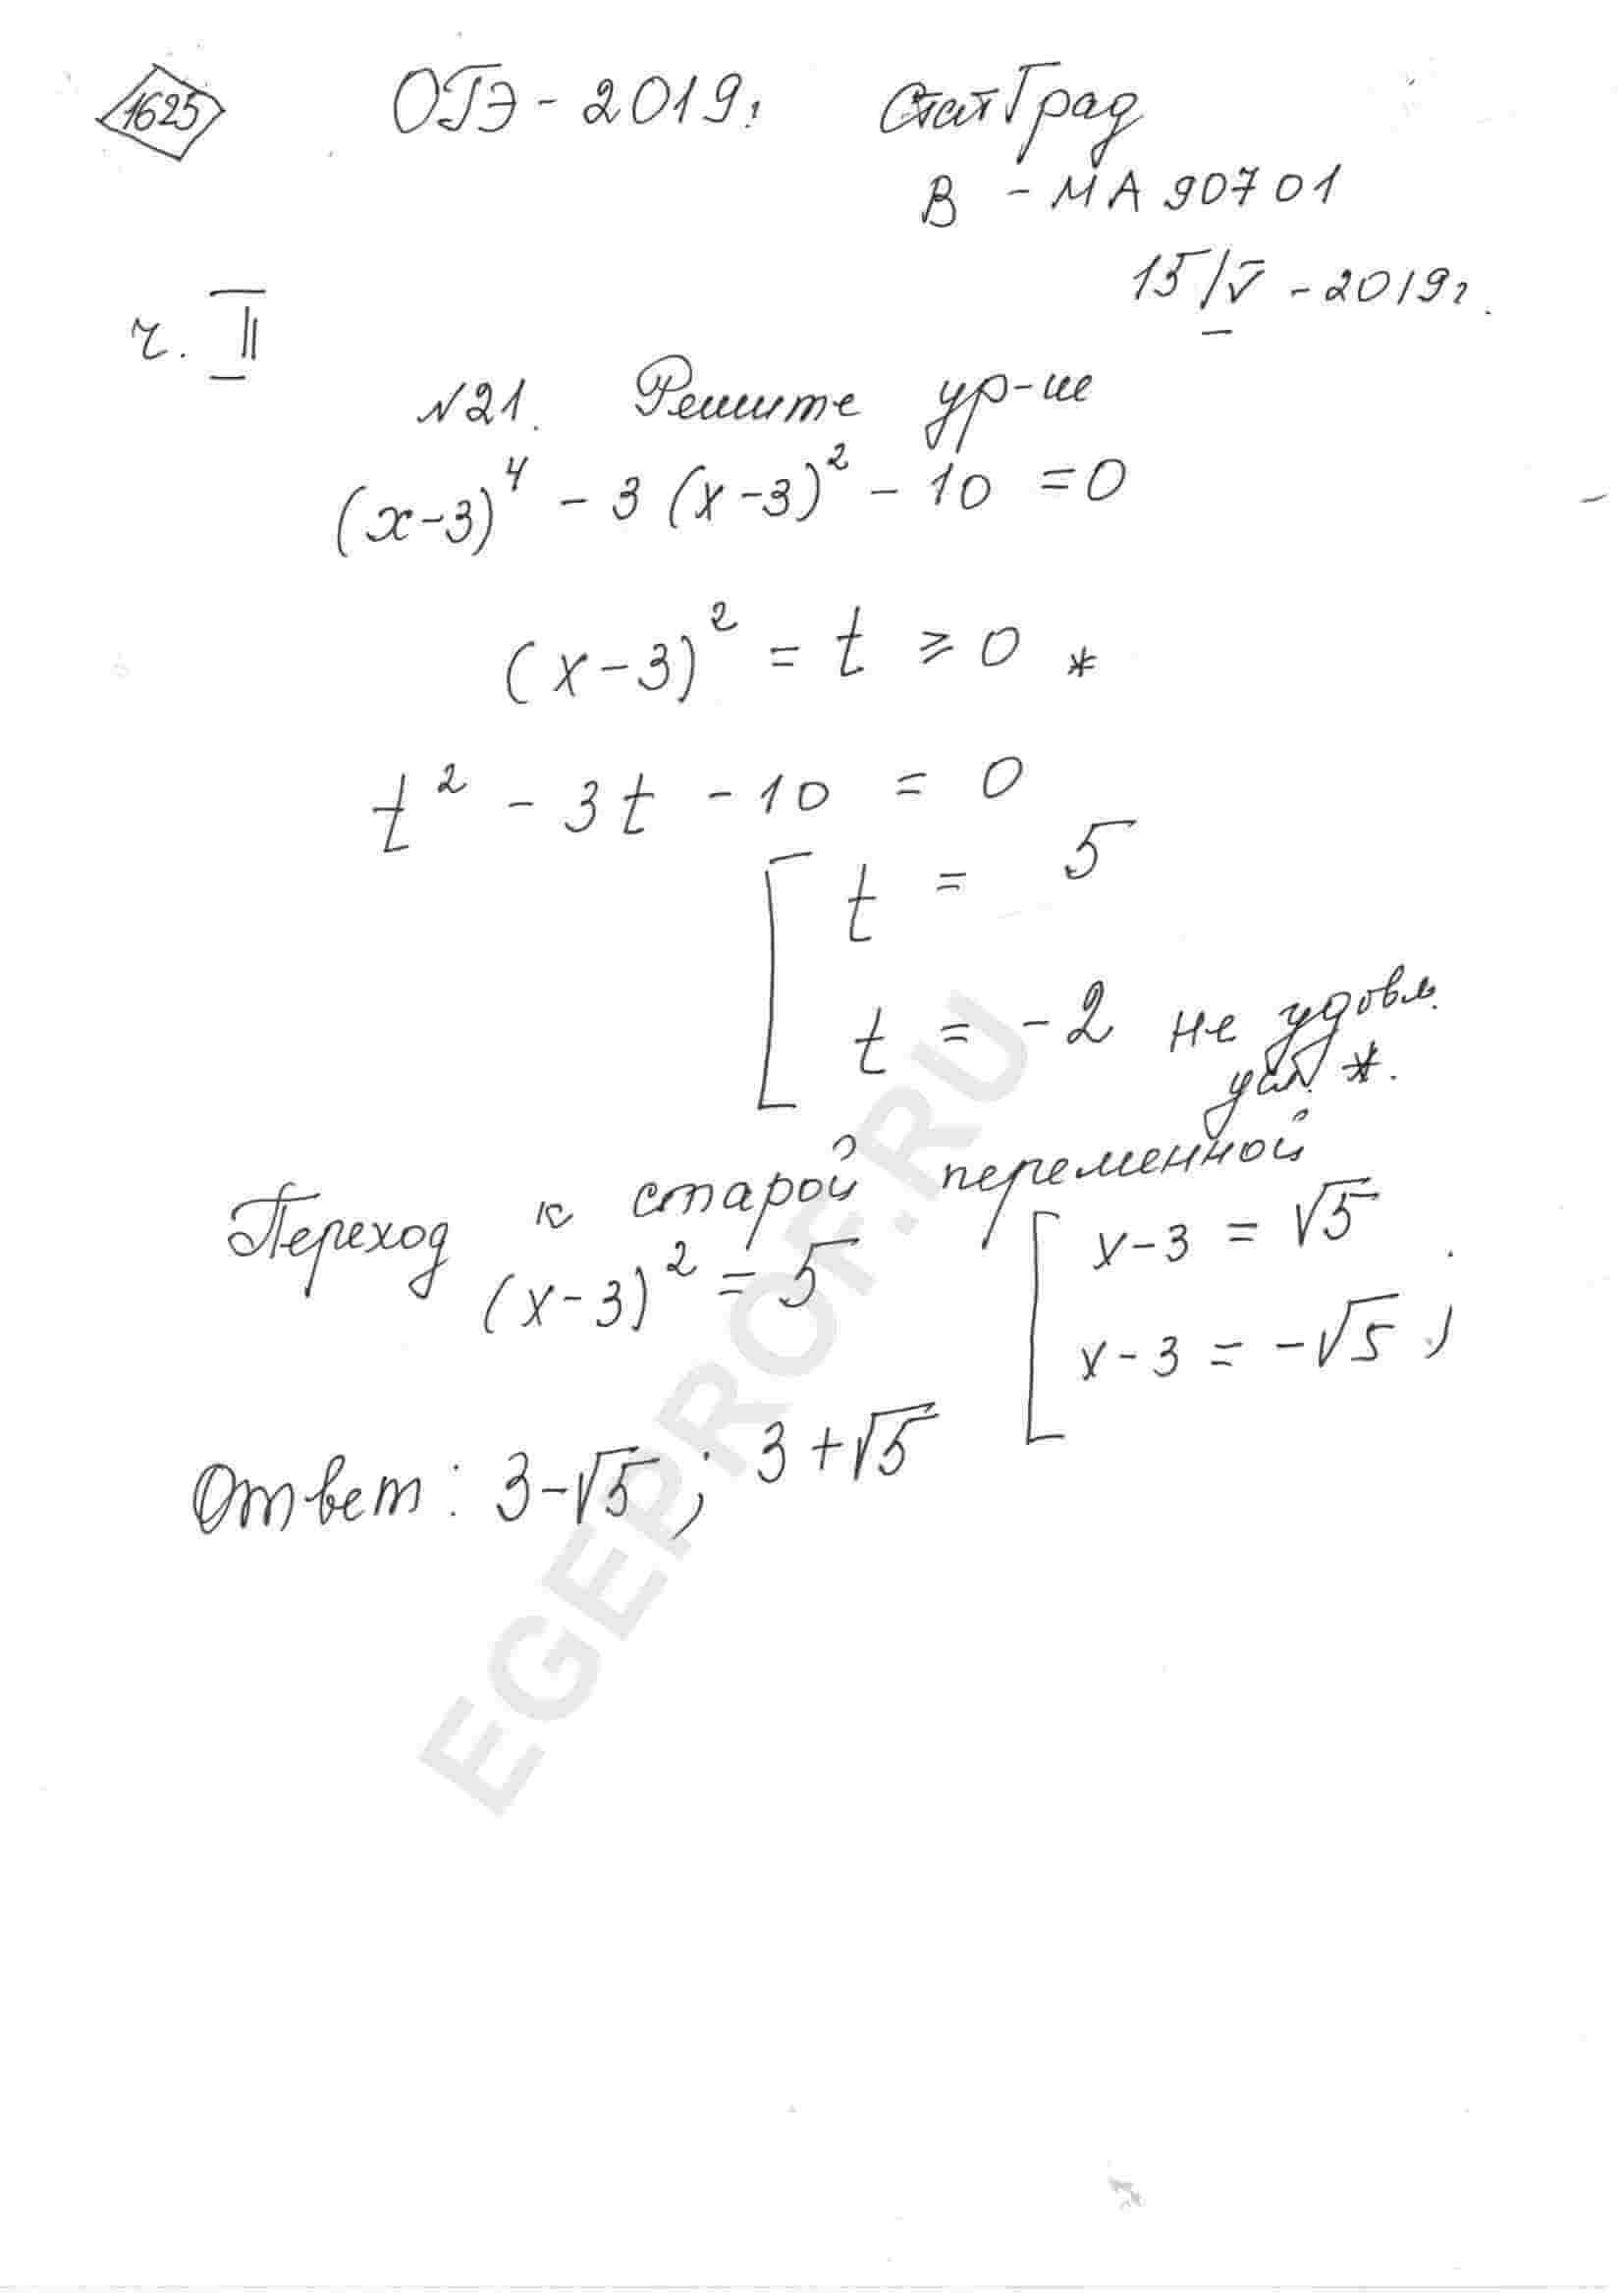 1625 ОГЭ - 2019г. СтатГрад
В - МА 90701
15/V - 2019г.
ч. II
№21. Решите ур-ие
(x-3)⁴ - 3(x-3)² - 10 = 0
(x-3)² = t ≥ 0 *
t² - 3t - 10 = 0
t = 5
t = -2 не удовл.
усл. *.
Переход к старой переменной
(x-3)² = 5
x-3 = √5
x-3 = -√5 ;
Ответ: 3-√5 ; 3+√5
EGEPROF.RU